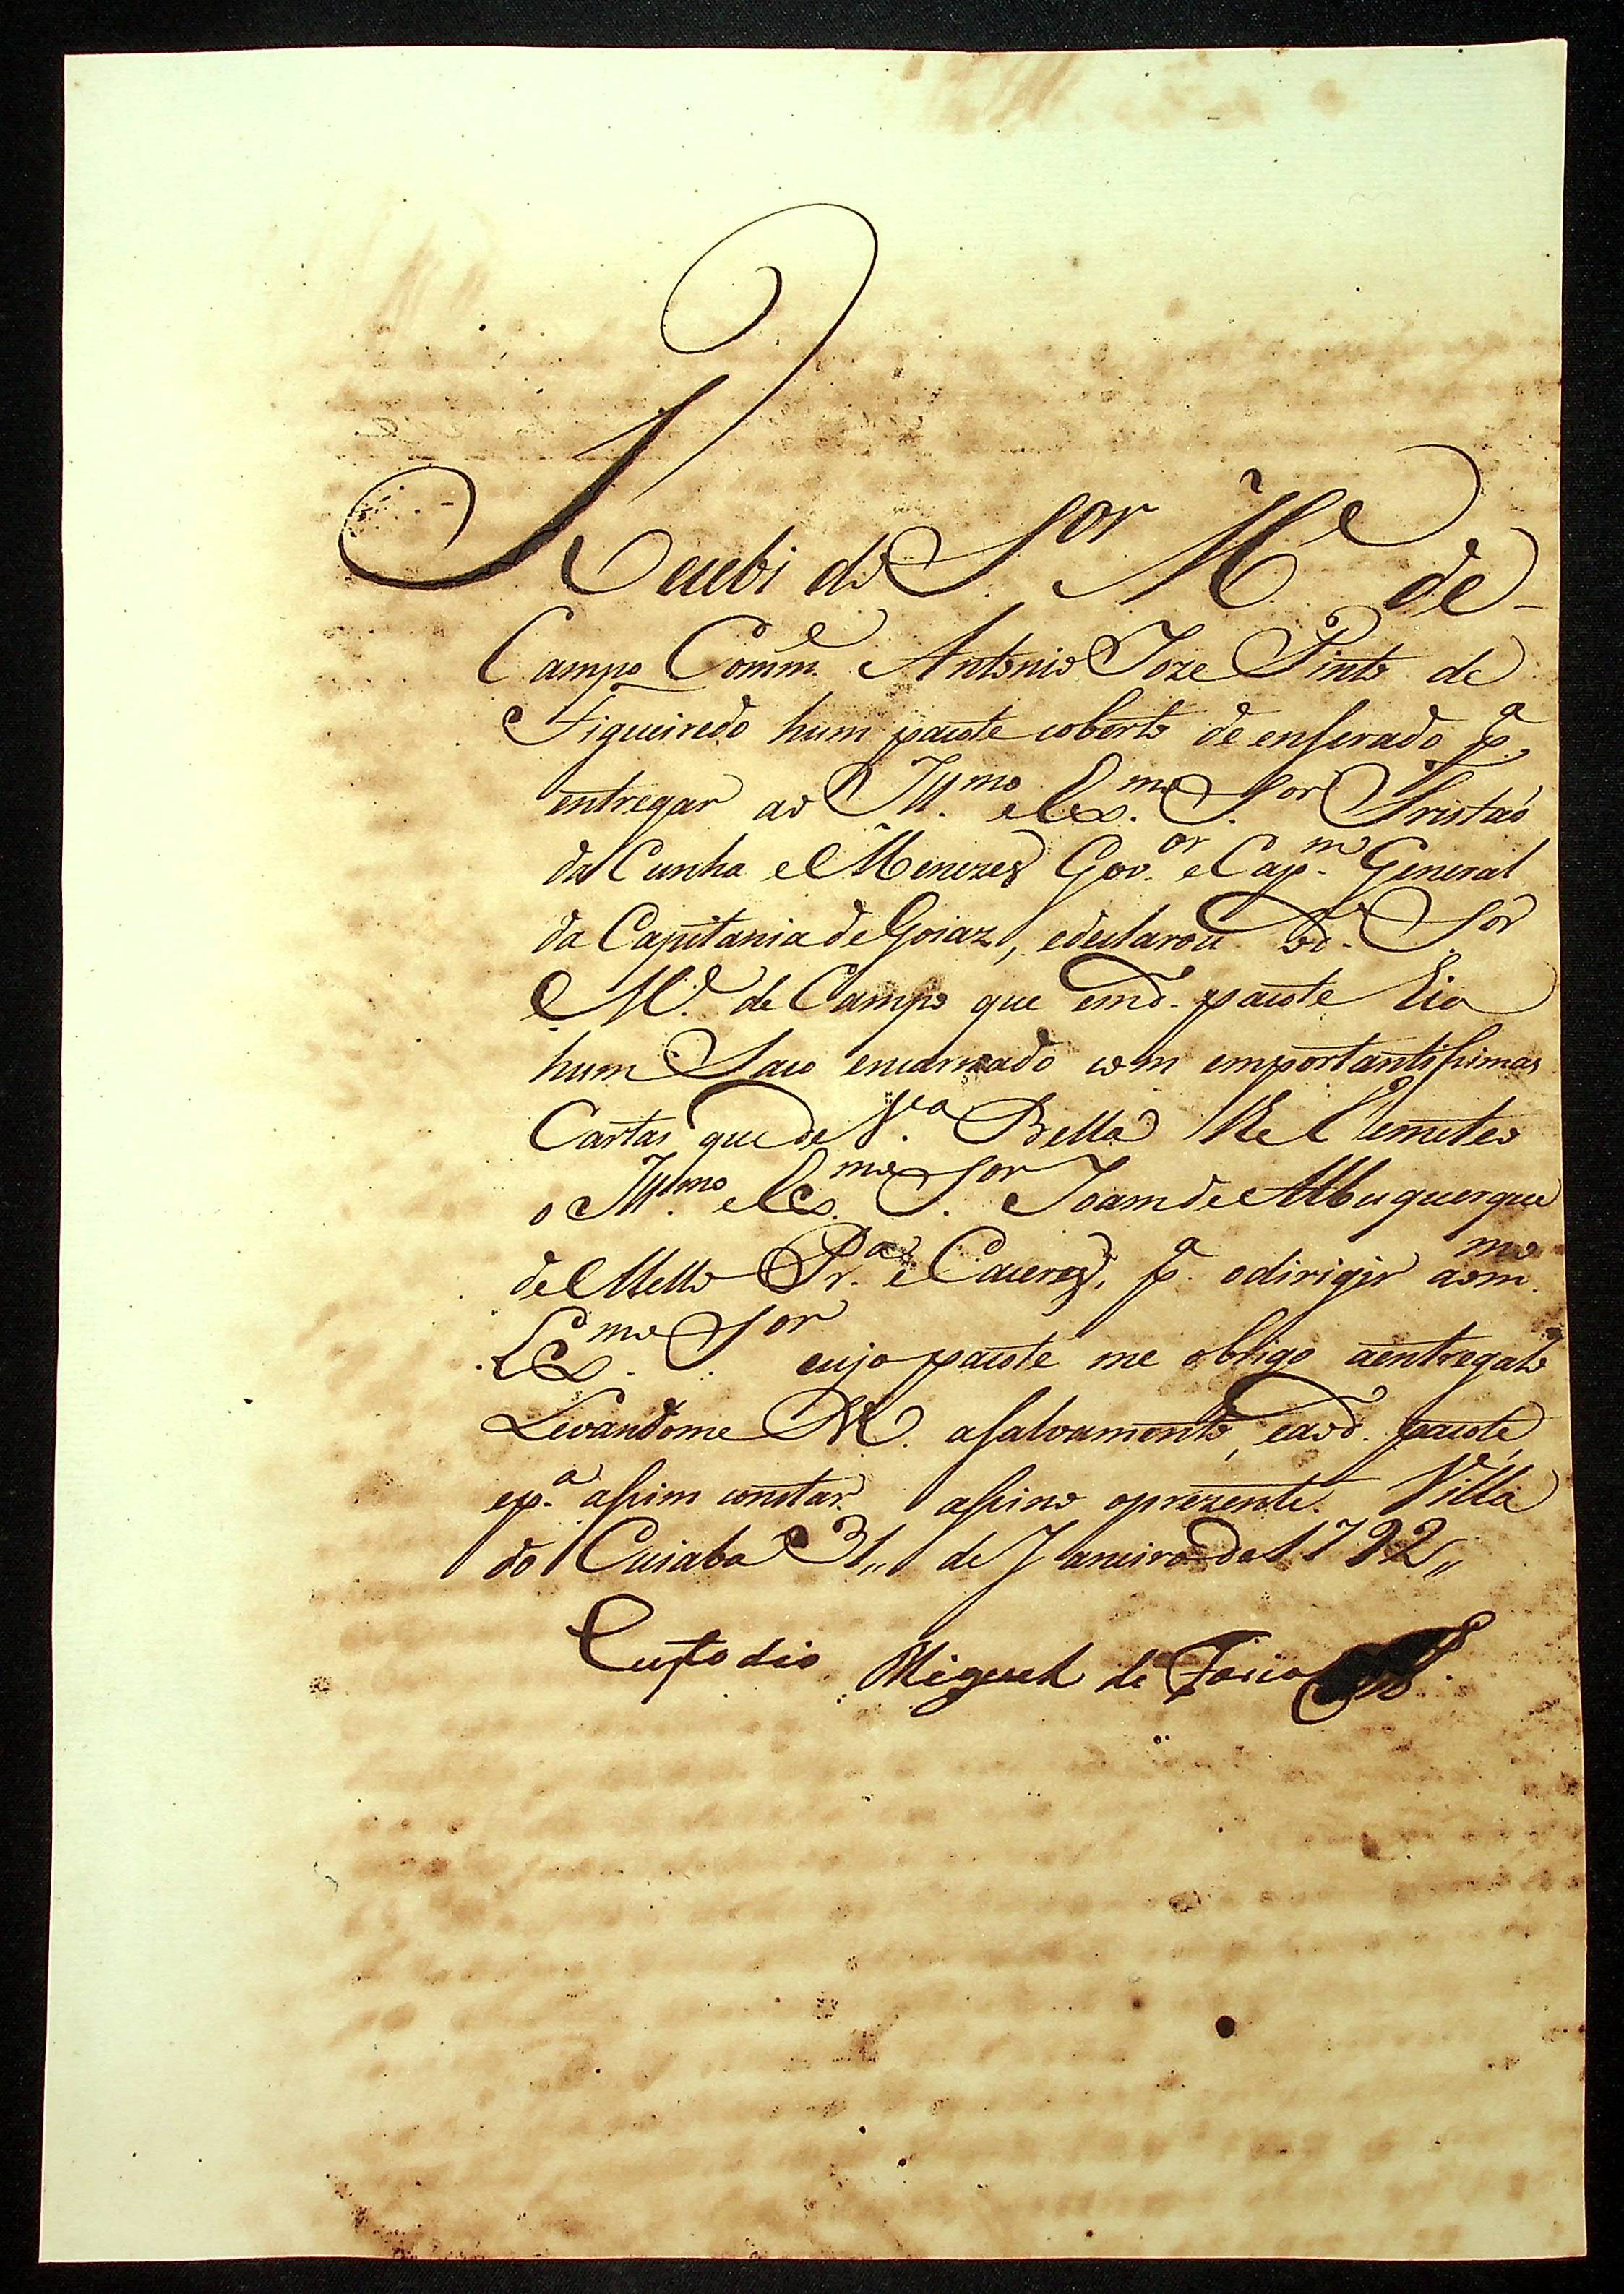 Recebi do S.or M.e de
Campo Comm.e Antonio Joze Pinto de
Figueiredo hum pacote coberto de enserado p.a
entregar ao Ill.mo e Ex.mo S.or Tristaõ
da Cunha e Menezes Gov.or e Cap.m General
da Capitania de Goiaz, edeclarou od.o Sor
M.e de Campo que emd.o pacote hia
hum Saco encarnado com emportantissimas
Cartas que de V.a Bella Remeteo
o Ill.mo e Ex.mo S.or Joam de Albuquerque
de Mello Pr.a e Caceres, p.a odirigir aom.mo
Ex.mo S.or cujo pacote me obrigo aentregalo
Levandome asalvamento, eaod.o pacote,
ep.a assim constar assino oprezente. Villa
do Cuiaba 31,, de Janeiro de 1792,,
Custodio Miguel de